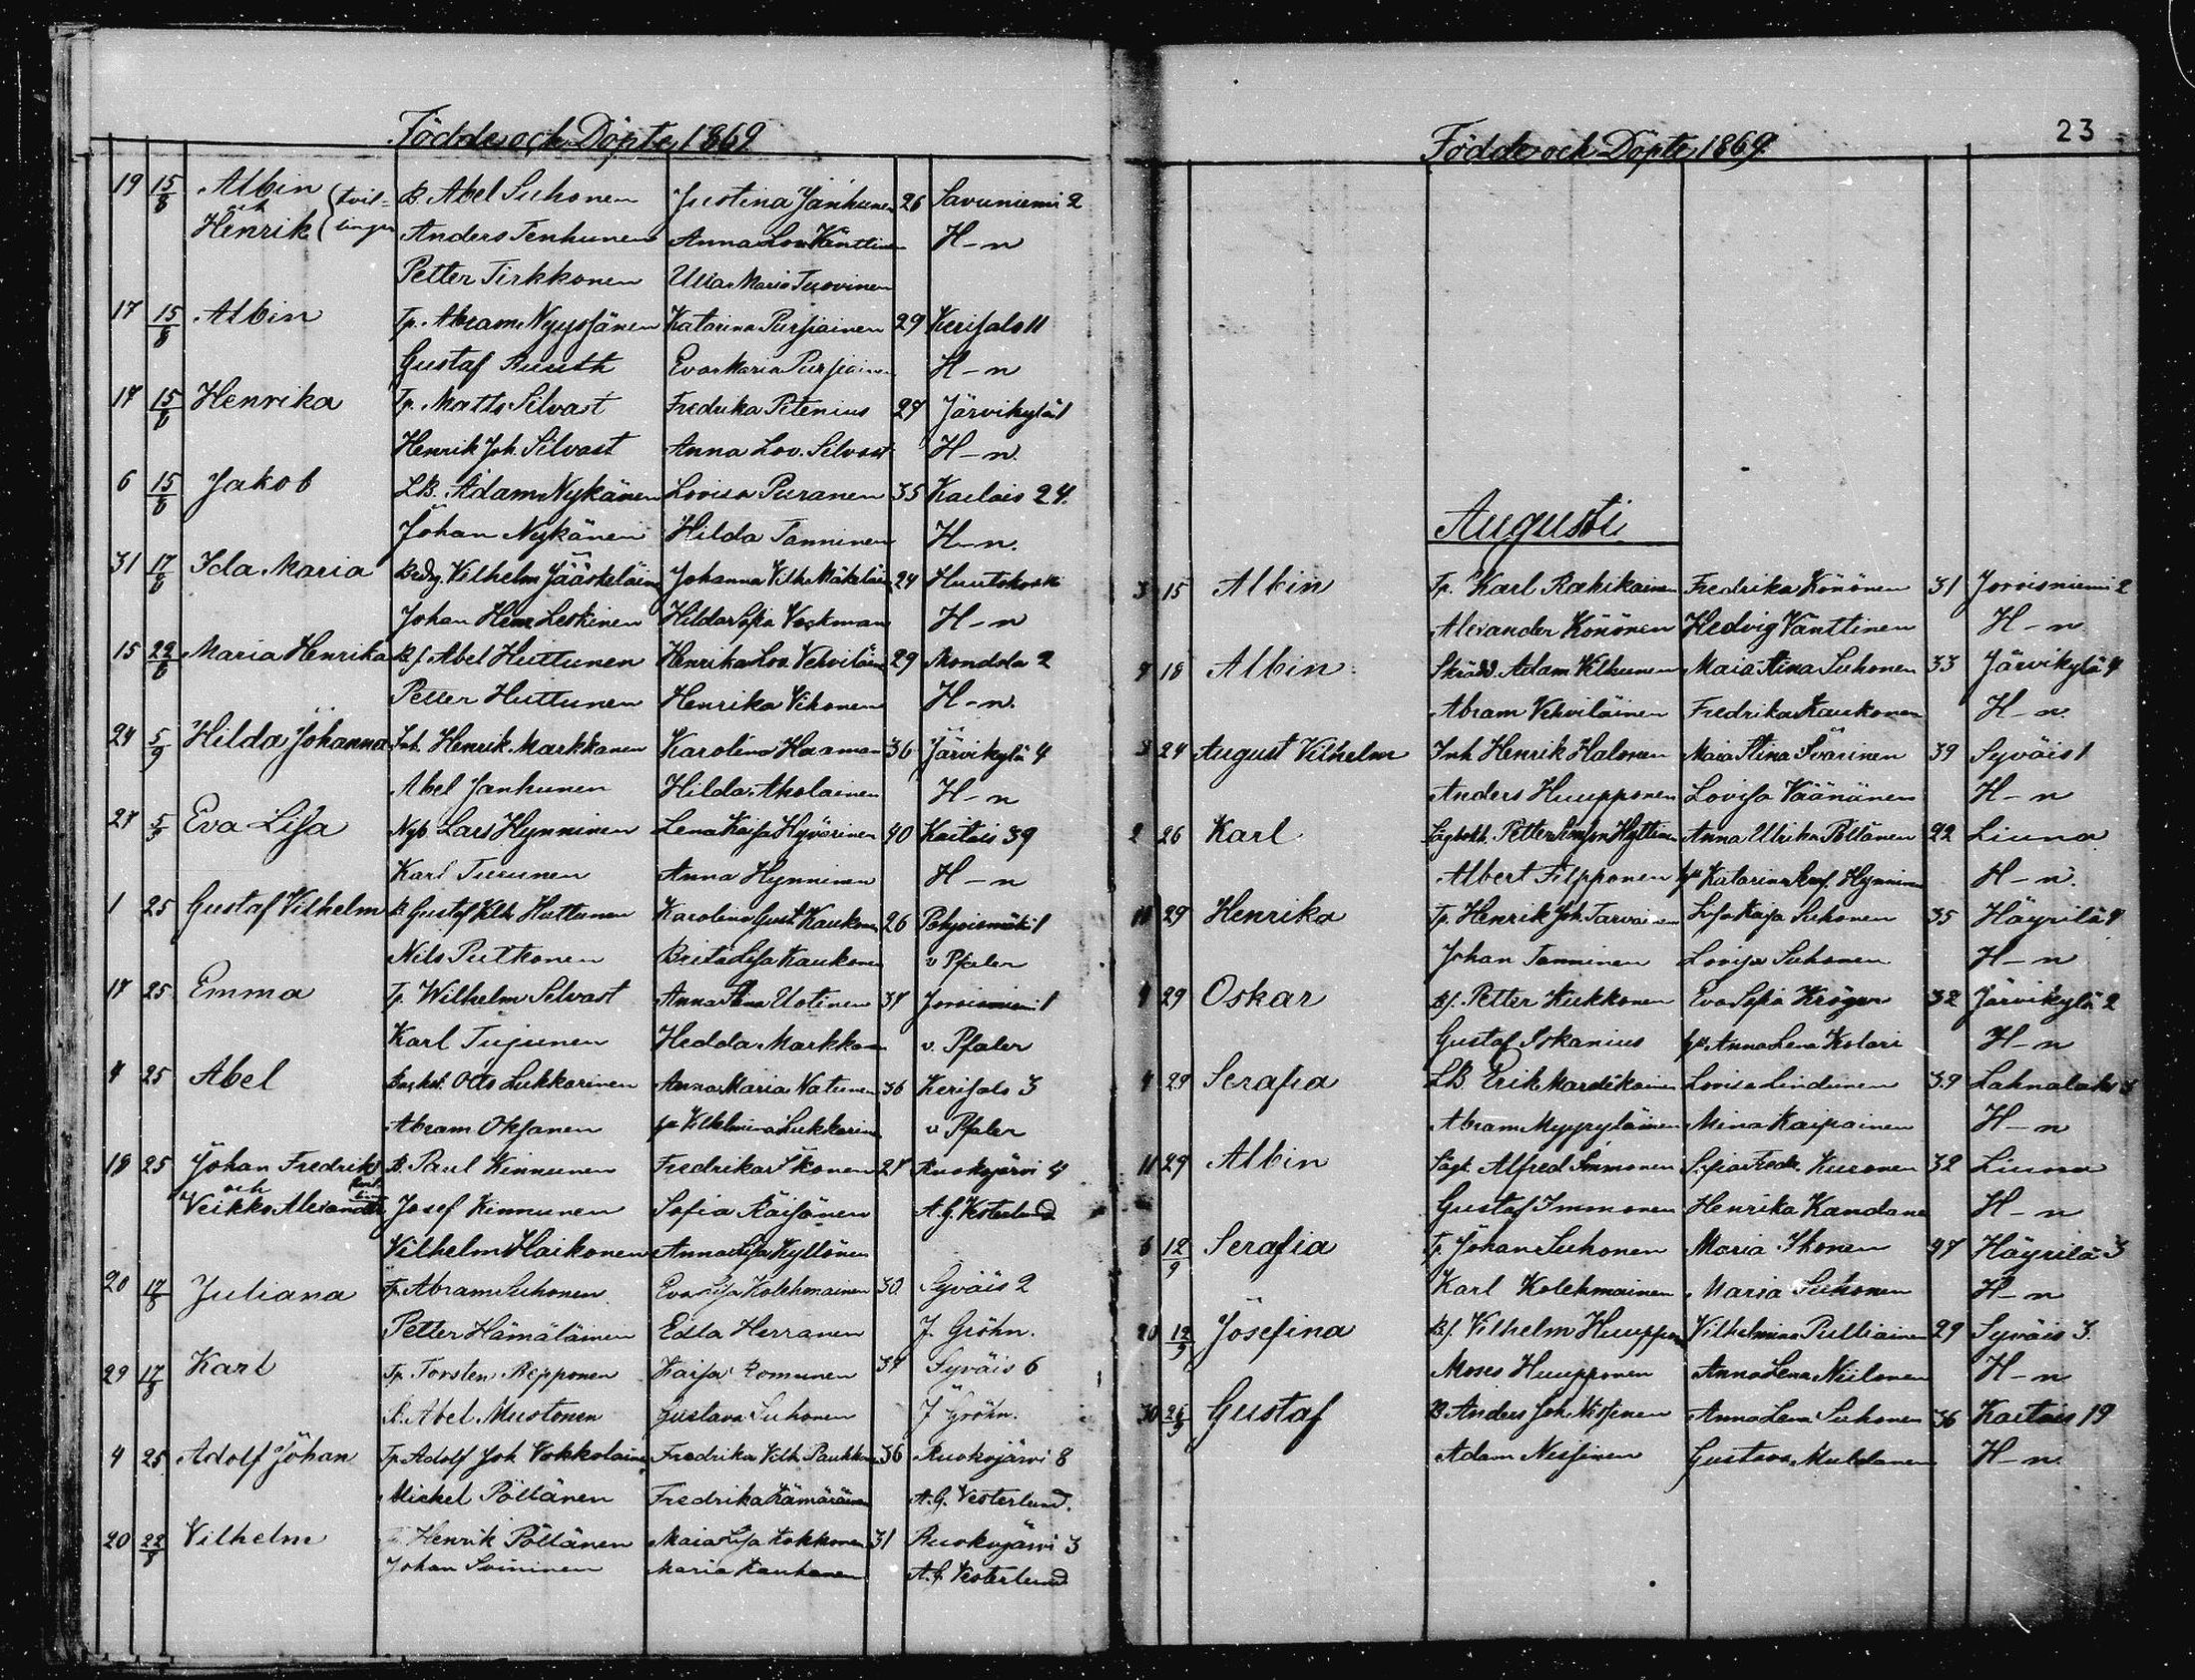 Födde och Döpte 1869
19 15/8 Albin B. Abel Suhonen Justina Janhunen 26 Savuniemi 2
och (tvil-
Henrik (lingar Anders Tenhunen Anna Lov. Vänttinen H-n
Petter Tirkkonen Ulla Maria Tuovinen
17 15/8 Albin Tp. Abram Nyyssänen Katarina Pursiainen 29 Kerisalo 11
Gustaf Ruuth Eva Maria Pursiain H-n
14 15/8 Henrika Tp. Matts Silvast Fredrika Petenius 24 Järvikylä 1
Henrik Joh. Silvast Anna Lov. Silvast H-n.
6 15/8 Jakob LB. Adam Nykänen Lovisa Puranen 35 Kaitais 24.
Johan Nykänen Hilda Tanninen H-n.
31 17/8 Ida Maria Vilhelm Jääskeläinen Johanna Vilh. Mäkeläin 24 Huutokoski
Johan Henr Leskinen Hilda Sofia Vackman H-n
15 22/8 Maria Henrika Bf. Abel Huttunen Henrika Lov. Vehviläin 29 Mondola 2
Petter Huttunen Henrika Vihonen H-n.
24 5/9 Hilda Johanna Inh. Henrik Markkanen Karolina Haaman 36 Järvikylä 4
Abel Janhunen Hilda Aholainen H-n
27 5/9 Eva Lisa Nyb. Lars Hynninen Lena Kaisa Hyvärinen 40 Kaitais 39
Karl Turunen Anna Hynninen H-n
1 25 Gustaf Vilhelm B. Gustaf Vilh. Huttunen Karolina Gust. Kaukonen 26 Pohjoismäki 1
Nils Putkonen Brita Lisa Kaukonen v Pfaler
14 25 Emma Tp. Wilhelm Silvast Anna Stina Uotinen 34 Joroisniemi 1
Karl Tujunen Hedda Markkan v. Pfaler
4 25 Abel Otto Lukkarinen Anna Maria Natunen 36 Kerisalo 3
Abram Oksanen Vilhelmina Lukkarine v Pfaler
18 25 Johan Fredrik B. Paul Kinnunen Fredrika Ikonen 24 Ruokojärvi 4
och
Veikko Alexander Josef Kinnunen Sofia Räisänen A.G. Vesterlund
Vilhelm Haikonen Anna Lisa Kyllönen
20 17/8 Juliana Tp. Abram Suhonen Eva Lisa Kolehmainen 30 Syväis 2
Petter Hämäläinen Edla Herranen J. Gröhn.
29 17/8 Karl Tp. Torsten Repponen Kaisa Romunen 34 Syväis 6
Abel Mustonen Gustava Suhonen J. Gröhn.
4 25 Adolf Johan Tp Adolf Joh Vokkolaine Fredrika Vilh. Paukkone 36 Ruokojärvi 8
Mickel Pöllänen Fredrika Hämäräinen A.G. Vesterlund.
20 22/8 Vilhelm Henrik Pöllänen Maia Lisa Kokkonen 31 Ruokojärvi 3
Johan Soininen Maria Kauhanen A.G. Vesterlund
Födde och Döpte 1869.
23
Augusti
3 15 Albin Tp. Karl Rahikainen Fredrika Könönen 31 Joroisniemi 2
Alexander Könönen Hedvig Vänttinen H-n.
9 18 Albin Skrädd. Adam Vilhunen Maia Stina Suhonen 33 Järvikylä 4
Abram Vehviläinen Fredrika Kaukonen H-n.
3 24 August Vilhelm Inh Henrik Halonen Maia Stina Svärinen 39 Syväis 1
Anders Huupponen Lovisa Väänänen H-n
2 26 Karl Petter Hyttinen Anna Ulrika Pöllänen 22 Liuna
Albert Filpponen Katarina Hynninen H-n.
29 Henrika Tp. Henrik Joh. Tarvainen Lisa Kaisa Suhonen 35 Häyrilä 4
Johan Tanninen Lovisa Suhonen H-n
9 29 Oskar Bf. Petter Kukkonen Eva Sofia Kröger 32 Järvikylä 2
Gustaf Iskanius Anna Lena Kolari H-n
4 29 Serafia LB. Erik Mardikainen Lovisa Lindunen 39 Lahnalaks
Abram Myyryläinen Mina Kaipainen H-n
11 29 Albin Alfred Immonen Sofia Fredr. Kuronen 32 Liuna
Gustaf Immonen Henrika Kandane H-n
6 12/9 Serafia Tp Johan Suhonen Maria Ikonen 47 Häyrilä 3
Karl Kolehmainen Maria Suhonen H-n
20 12/9 Josefina Bf. Vilhelm Huuppon Vilhelmina Pulliainen 29 Syväis 3.
Moses Huupponen Anna Lena Niilonen H-n
30 26/9 Gustaf B Anders Joh. Nissinen Anna Lena Suhonen 36 Kaitais 19
Adam Nissinen Gustava Muldanen H-n